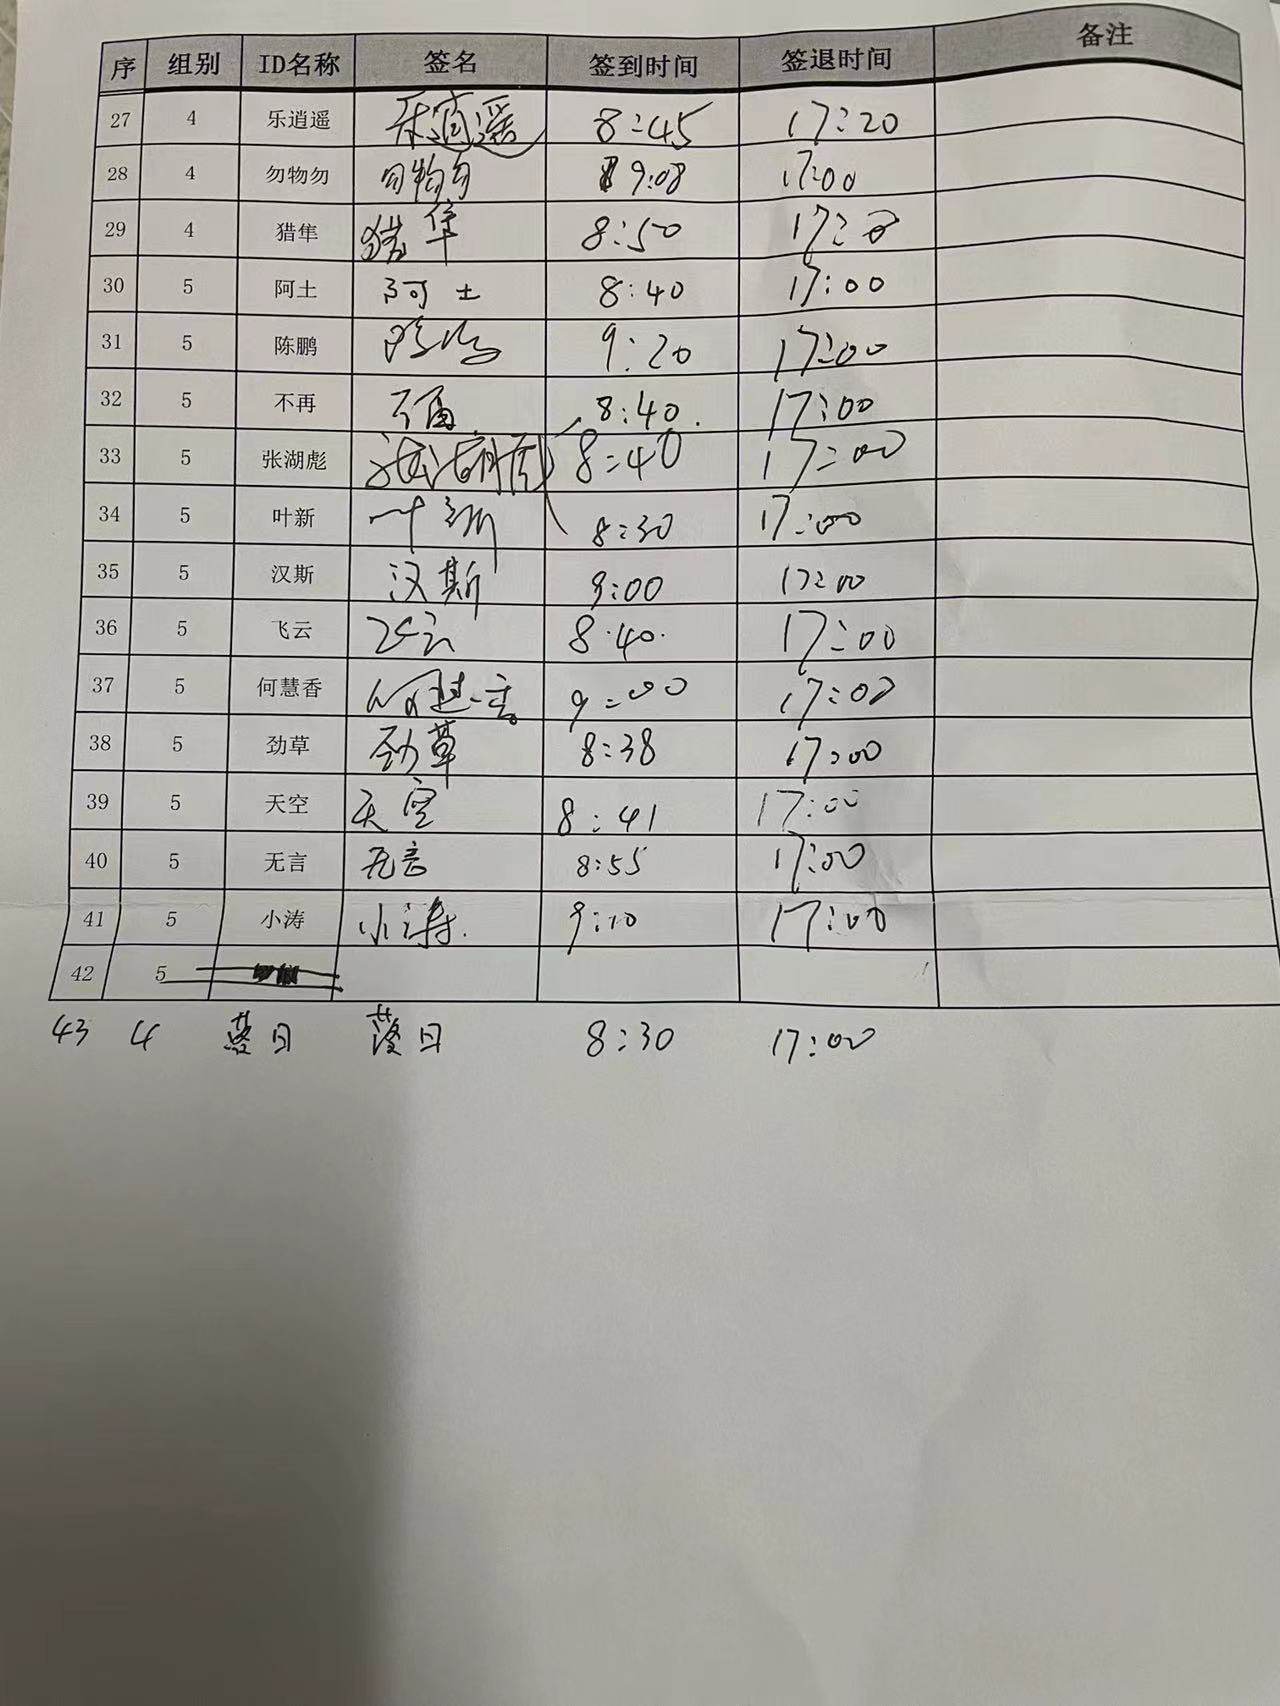 序 组别 ID名称 签名 签到时间 签退时间 备注
27 4 乐逍遥 乐逍遥 8:45 17:20
28 4 勿物勿 勿物勿 9:08 17:00
29 4 猎隼 猎隼 8:50
30 5 阿土 阿土 8:40 17:00
31 5 陈鹏 陈鹏 9:20 17:00
32 5 不再 不再 8:40. 17:00
33 5 张湖彪 张湖彪 8:40 17:00
34 5 叶新 叶新 8:30 17:00
35 5 汉斯 汉斯 9:00 17:00
36 5 飞云 飞云 8:40. 17:00
37 5 何慧香 9:00 17:00
38 5 劲草 劲草 8:38 17:00
39 5 天空 天空 8:41 17:00
40 5 无言 无言 8:55 17:00
41 5 小涛 小涛. 9:10 17:00
42 5
43 4 落日 落日 8:30 17:00